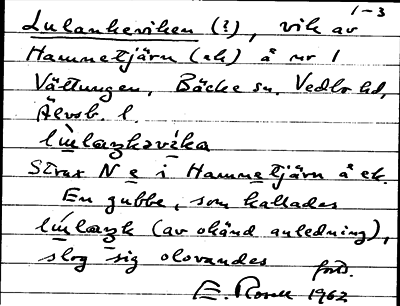 1-3
Lulankeviken (?), vik av
Hamnetjärn (ek) å nr 1
Vättungen, Bäcke sn, Vedbo hd,
Älvsb. l.
Strax N e i Hamnetjärn å ek.
En gubbe, som kallades
(av okänd anledning),
slog sig olovandes
forts.
E. Rosell 1962